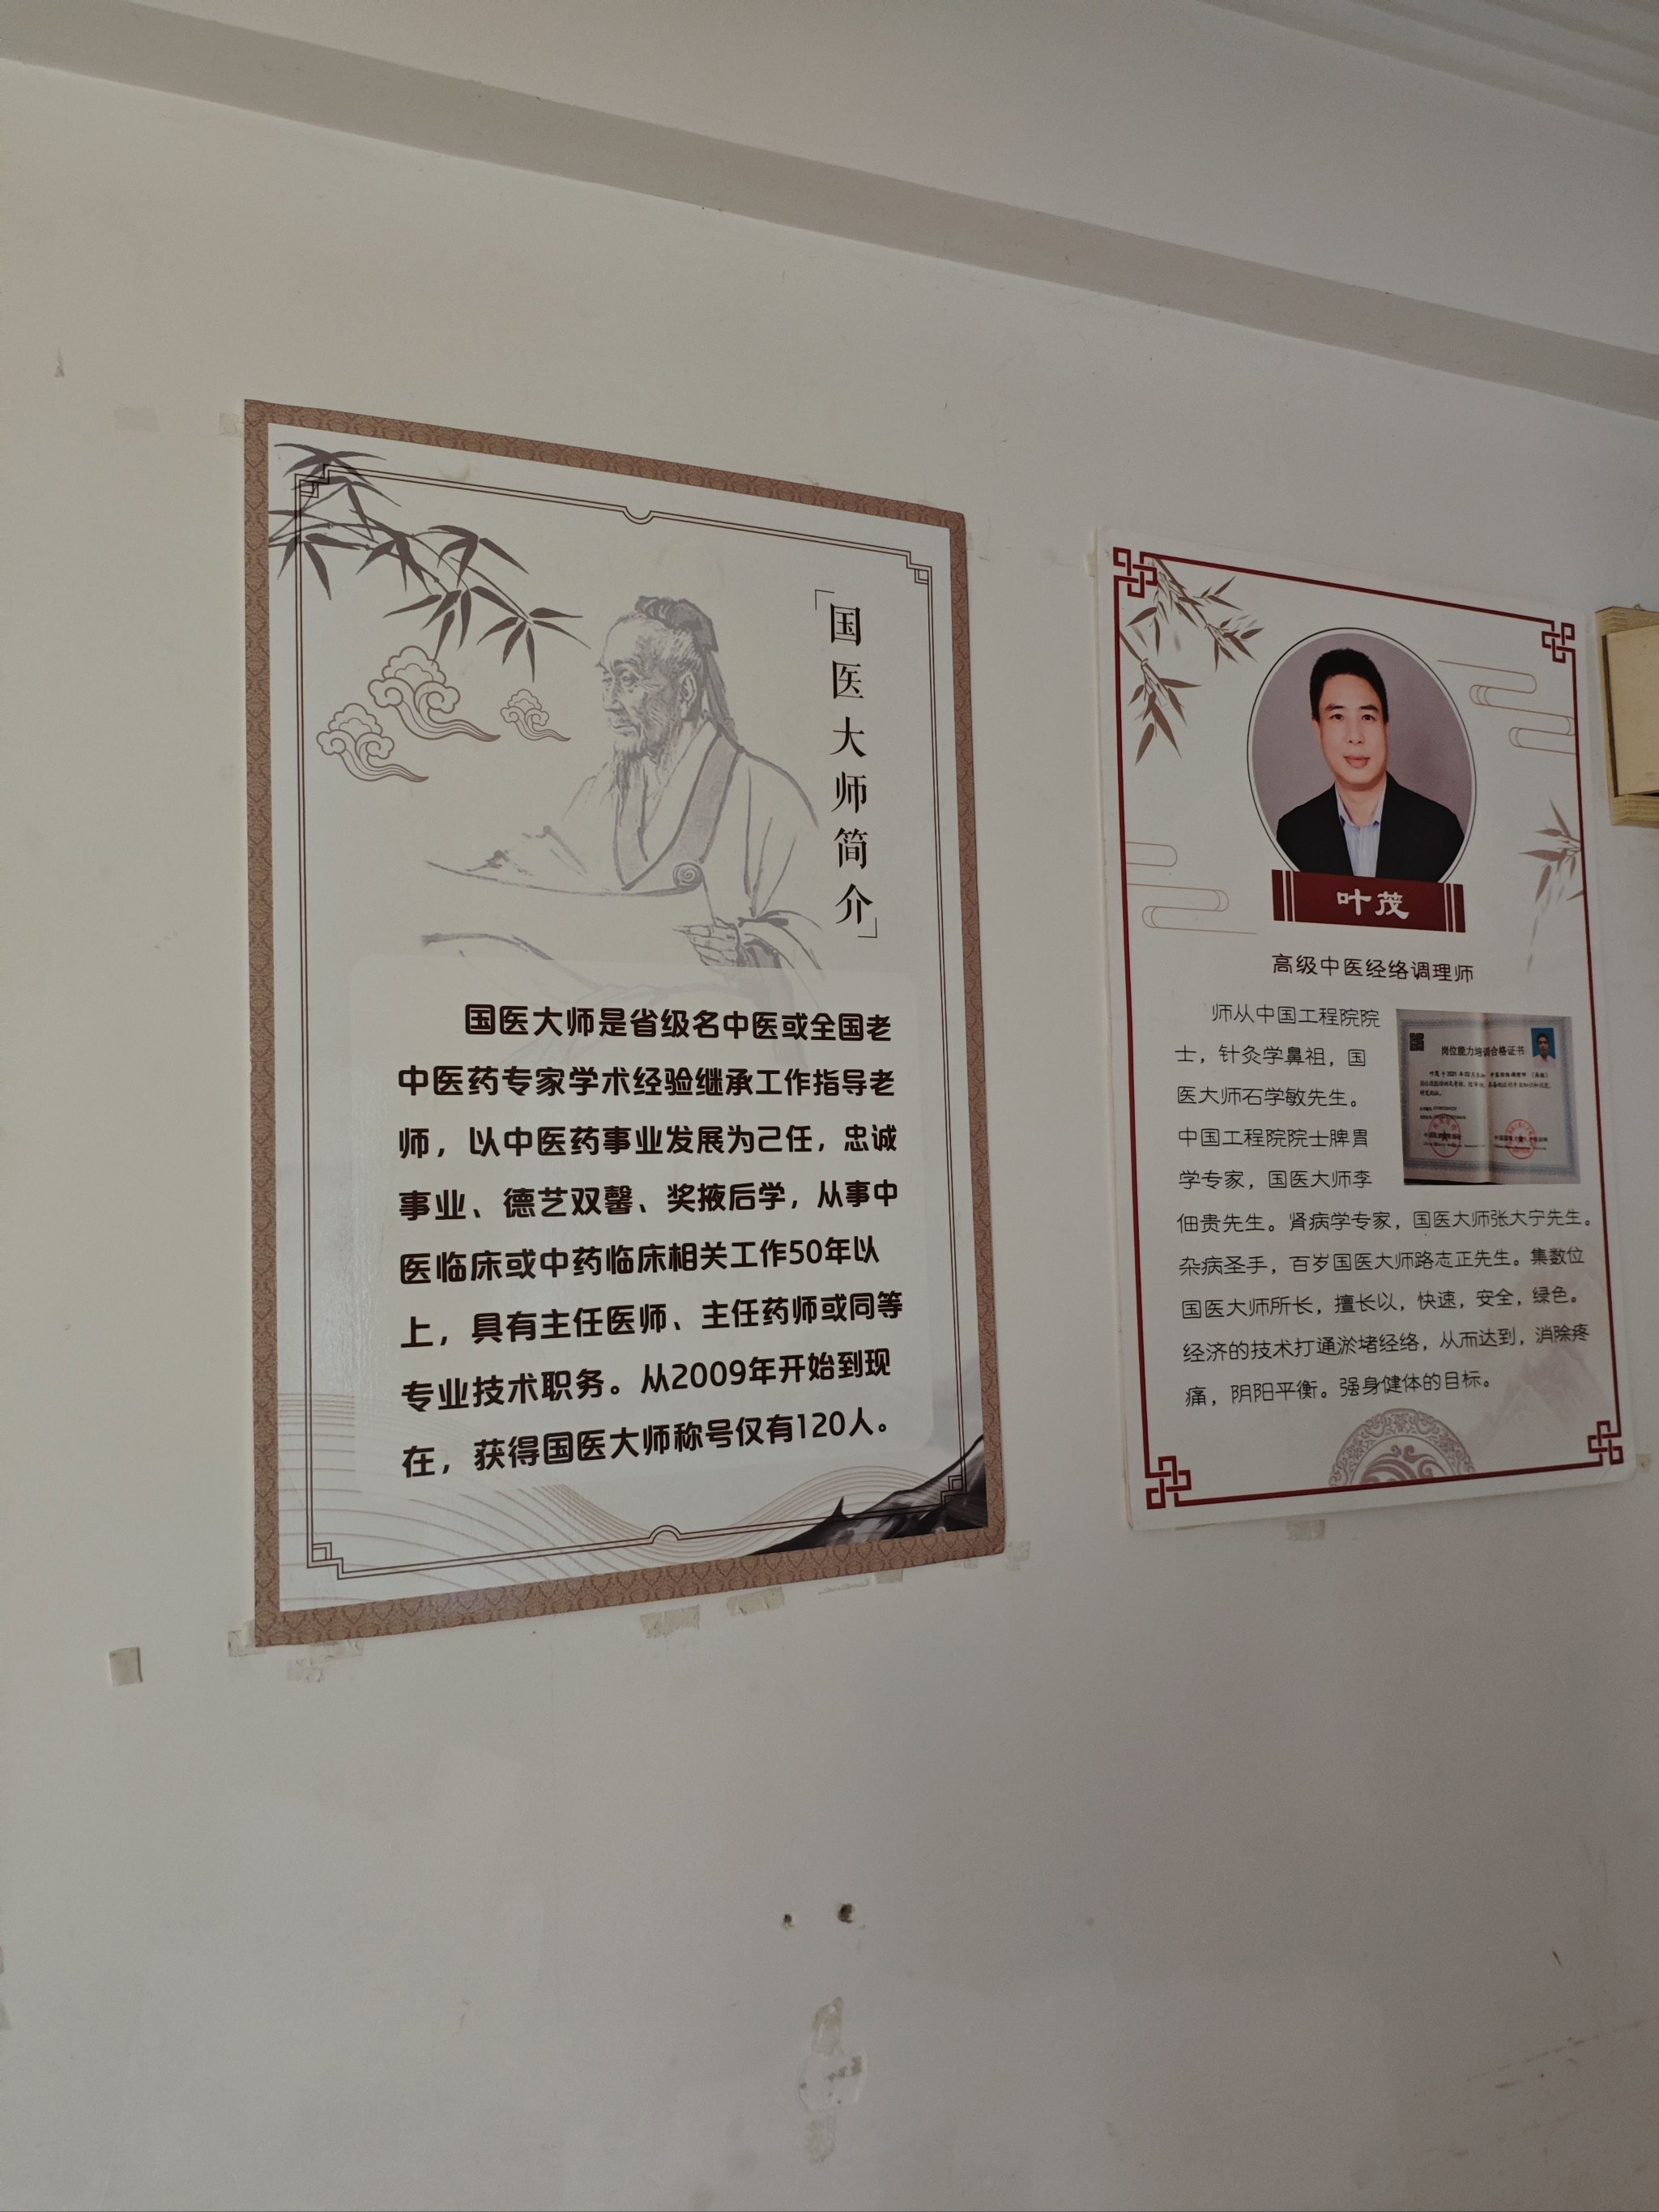 「国医大师简介」
国医大师是省级名中医或全国老
中医药专家学术经验继承工作指导老
师，以中医药事业发展为己任，忠诚
事业、德艺双馨、奖掖后学，从事中
医临床或中药临床相关工作50年以
上，具有主任医师、主任药师或同等
专业技术职务。从2009年开始到现
在，获得国医大师称号仅有120人。
叶茂
高级中医经络调理师
师从中国工程院院
士，针灸学鼻祖，国
医大师石学敏先生。
中国工程院院士脾胃
学专家，国医大师李
佃贵先生。肾病学专家，国医大师张大宁先生。
杂病圣手，百岁国医大师路志正先生。集数位
国医大师所长，擅长以，快速，安全，绿色。
经济的技术打通淤堵经络，从而达到，消除疼
痛，阴阳平衡。强身健体的目标。
岗位能力培训合格证书